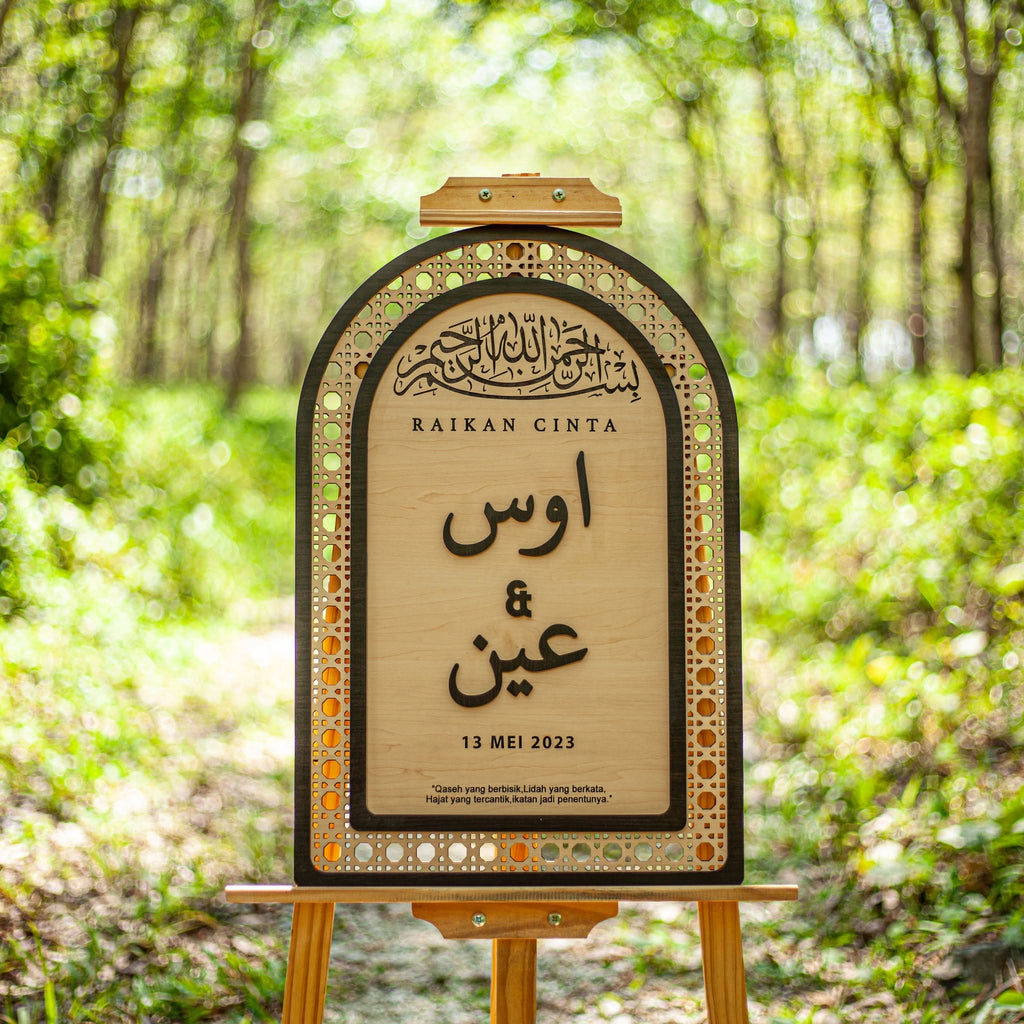 بسم الله الرحمن الرحيم
RAIKAN CINTA
اوس
&
عين
13 MEI 2023
"Qaseh yang berbisik,Lidah yang berkata,
Hajat yang tercantik,ikatan jadi penentunya."